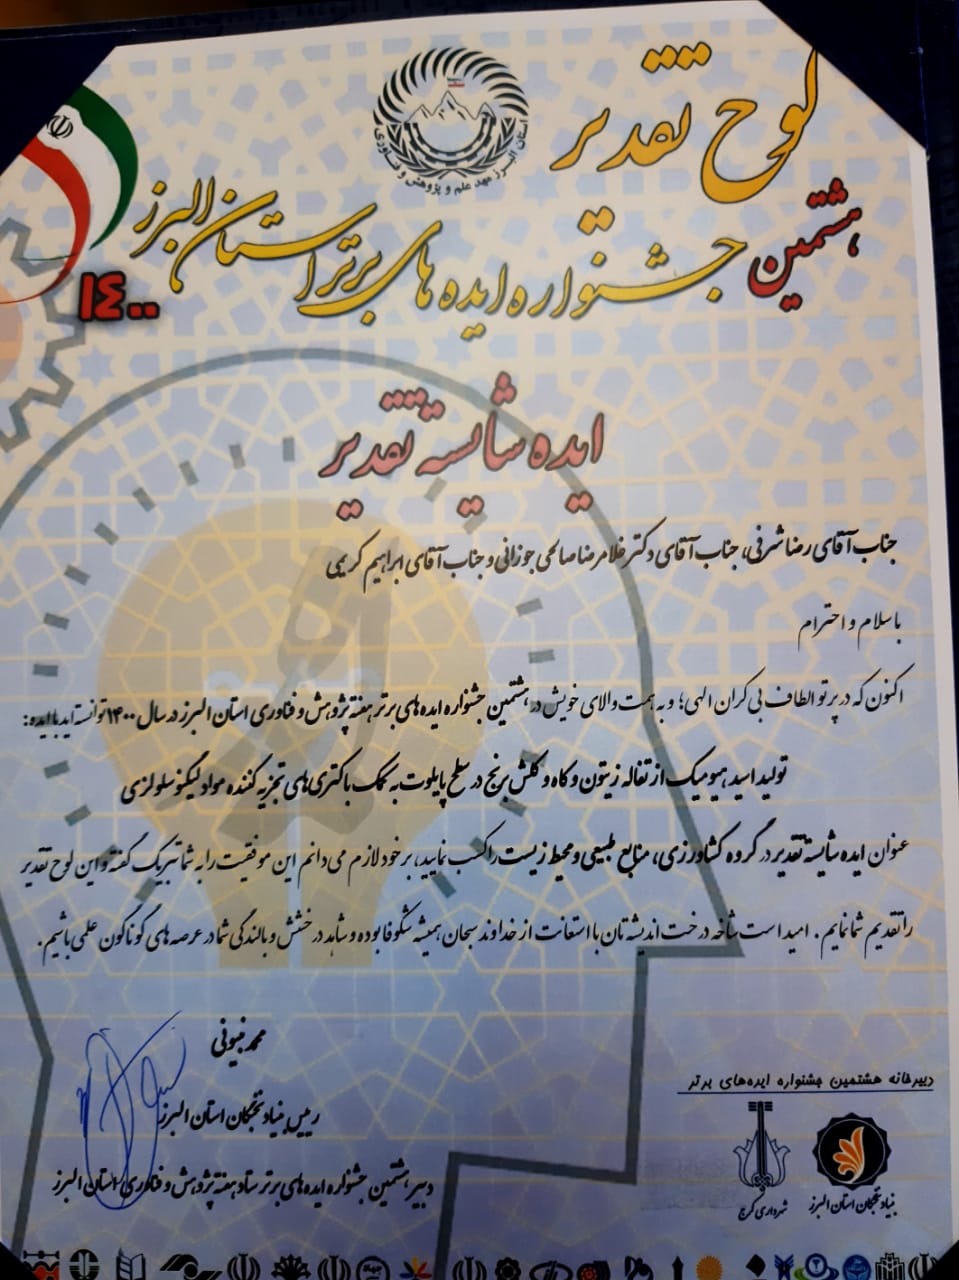 لوح تقدیر
استان البرز مهد علم و پژوهش و فناوری
هشتمین جشنواره ایده های برتر استان البرز
۱۴۰۰
ایده شایسته تقدیر
جناب آقای رضا شرفی، جناب آقای دکتر غلامرضا صالحی جوزانی و جناب آقای ابراهیم کریمی
با سلام و احترام
اکنون که در پرتو الطاف بی کران الهی؛ و به همت والای خویش در هشتمین جشنواره ایده های برتر هفته پژوهش و فناوری استان البرز در سال ۱۴۰۰ توانسته اید با ایده:
تولید اسید هیومیک از تفاله زیتون و کاه و کلش برنج در سطح پایلوت به کمک باکتری های تجزیه کننده مواد لیگنو سلولزی
عنوان ایده شایسته تقدیر در گروه کشاورزی، منابع طبیعی و محیط زیست را کسب نمایید، بر خود لازم می دانم این موفقیت را به شما تبریک گفته و این لوح تقدیر
را تقدیم شما نمایم. امید است شاخه درخت اندیشه تان با استعانت از خداوند سبحان همیشه شکوفا بوده و شاهد درخشش و بالندگی شما در عرصه های گوناگون علمی باشیم.
محمد نبیونی
رییس بنیاد نخبگان استان البرز
دبیر هشتمین جشنواره ایده های برتر ستاد هفته پژوهش و فناوری استان البرز
دبیرخانه هشتمین جشنواره ایده‌های برتر
بنیاد نخبگان استان البرز
شهرداری کرج